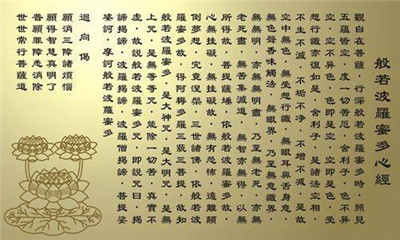 般若波羅蜜多心經
觀自在菩薩，行深般若波羅蜜多時，照見
五蘊皆空，度一切苦厄，舍利子，色不異
空，空不異色，色即是空，空即是色，受
想行識，亦復如是，舍利子，是諸法空相，
不生不滅，不垢不淨，不增不減，是故
空中無色，無受想行識，無眼耳鼻舌身意，
無色聲香味觸法，無眼界，乃至無意識界，
無無明，亦無無明盡，乃至無老死，亦無
老死盡，無苦集滅道，無智亦無得，以無
所得故，菩提薩埵，依般若波羅蜜多故，
心無罣礙，無罣礙故，無有恐怖，遠離顛
倒夢想，究竟涅槃，三世諸佛，依般若波
羅蜜多故，得阿耨多羅三藐三菩提，故知
般若波羅蜜多，是大神咒，是大明咒，是無
上咒，是無等等咒，能除一切苦，真實不
虛，故說般若波羅蜜多咒，即說咒曰，揭
諦揭諦，波羅揭諦，波羅僧揭諦，菩提娑
婆訶，摩訶般若波羅蜜多
迴向偈
願消三障諸煩惱
願得智慧真明了
普願罪障悉消除
世世常行菩薩道